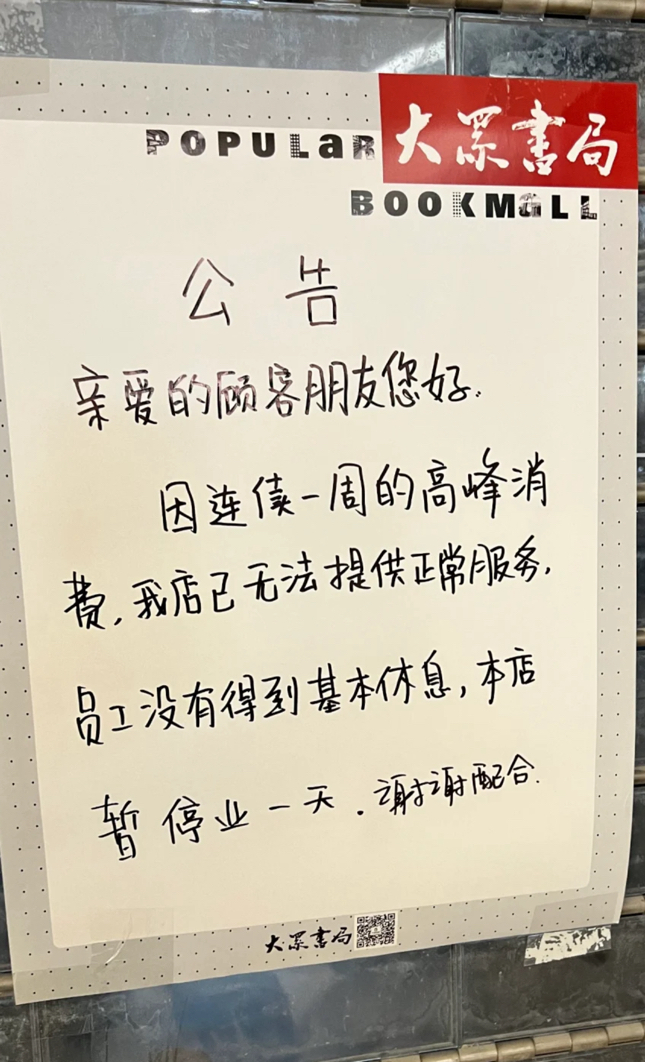 POPULAR 大眾書局
BOOKMALL
公告
亲爱的顾客朋友您好.
因连续一周的高峰消
费,我店已无法提供正常服务,
员工没有得到基本休息,本店
暂停业一天.谢谢配合.
大眾書局